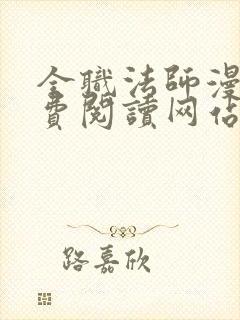 全職法師漫
費閱讀网佔
路嘉欣